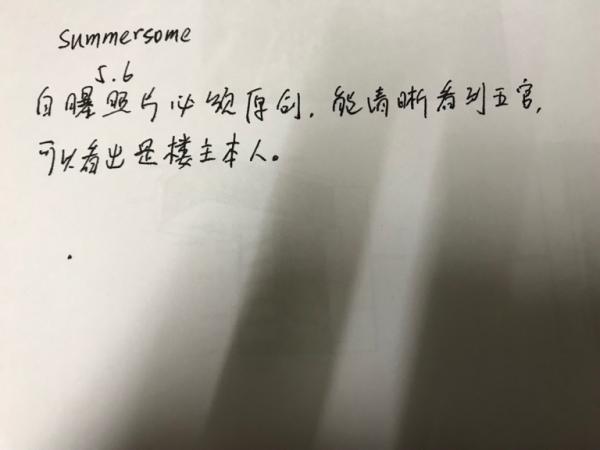 summersome
5.6
自曝照片必须原创,能清晰看到五官,
可以看出是楼主本人。